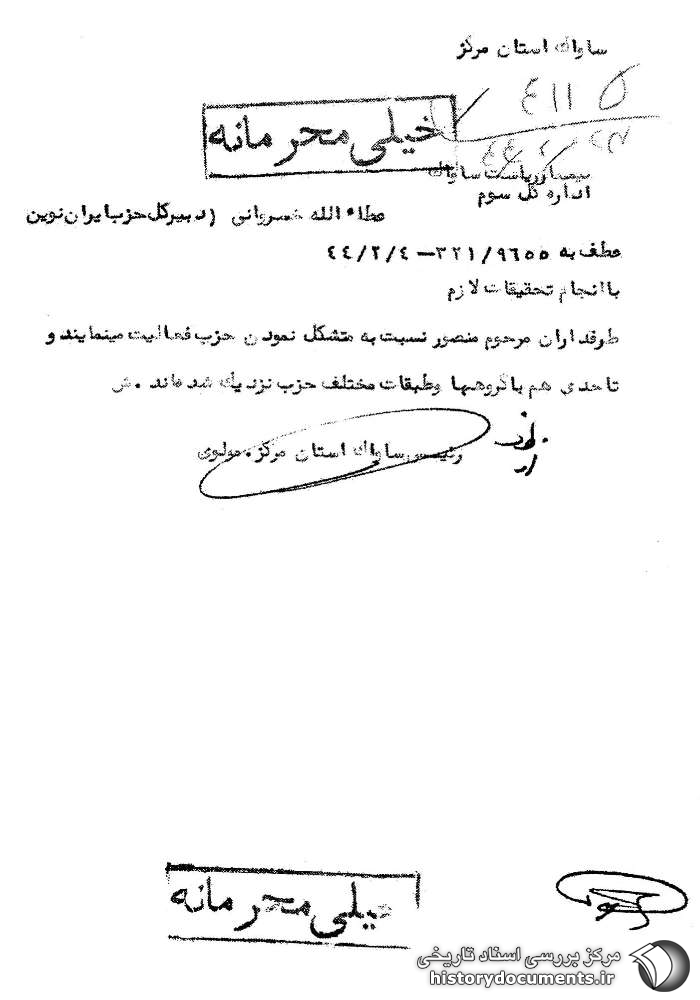 ساواك استان مركز
خیلی محرمانه
تیمسار ریاست ساواك
اداره كل سوم
عطاء الله خسروانی (دبیركل حزب ایران نوین
عطف به ۳۲۱/۹۶۵۵ — ۴۴/۲/۴
با انجام تحقیقات لازم
طرفداران مرحوم منصور نسبت به متشكل نمودن حزب فعالیت مینمایند و
تا حدی هم با گروهها و طبقات مختلف حزب نزدیك شده‌اند . ش
رئیس ساواك استان مركز . مولوی
خیلی محرمانه
مرکز بررسی اسناد تاریخی
historydocuments.ir